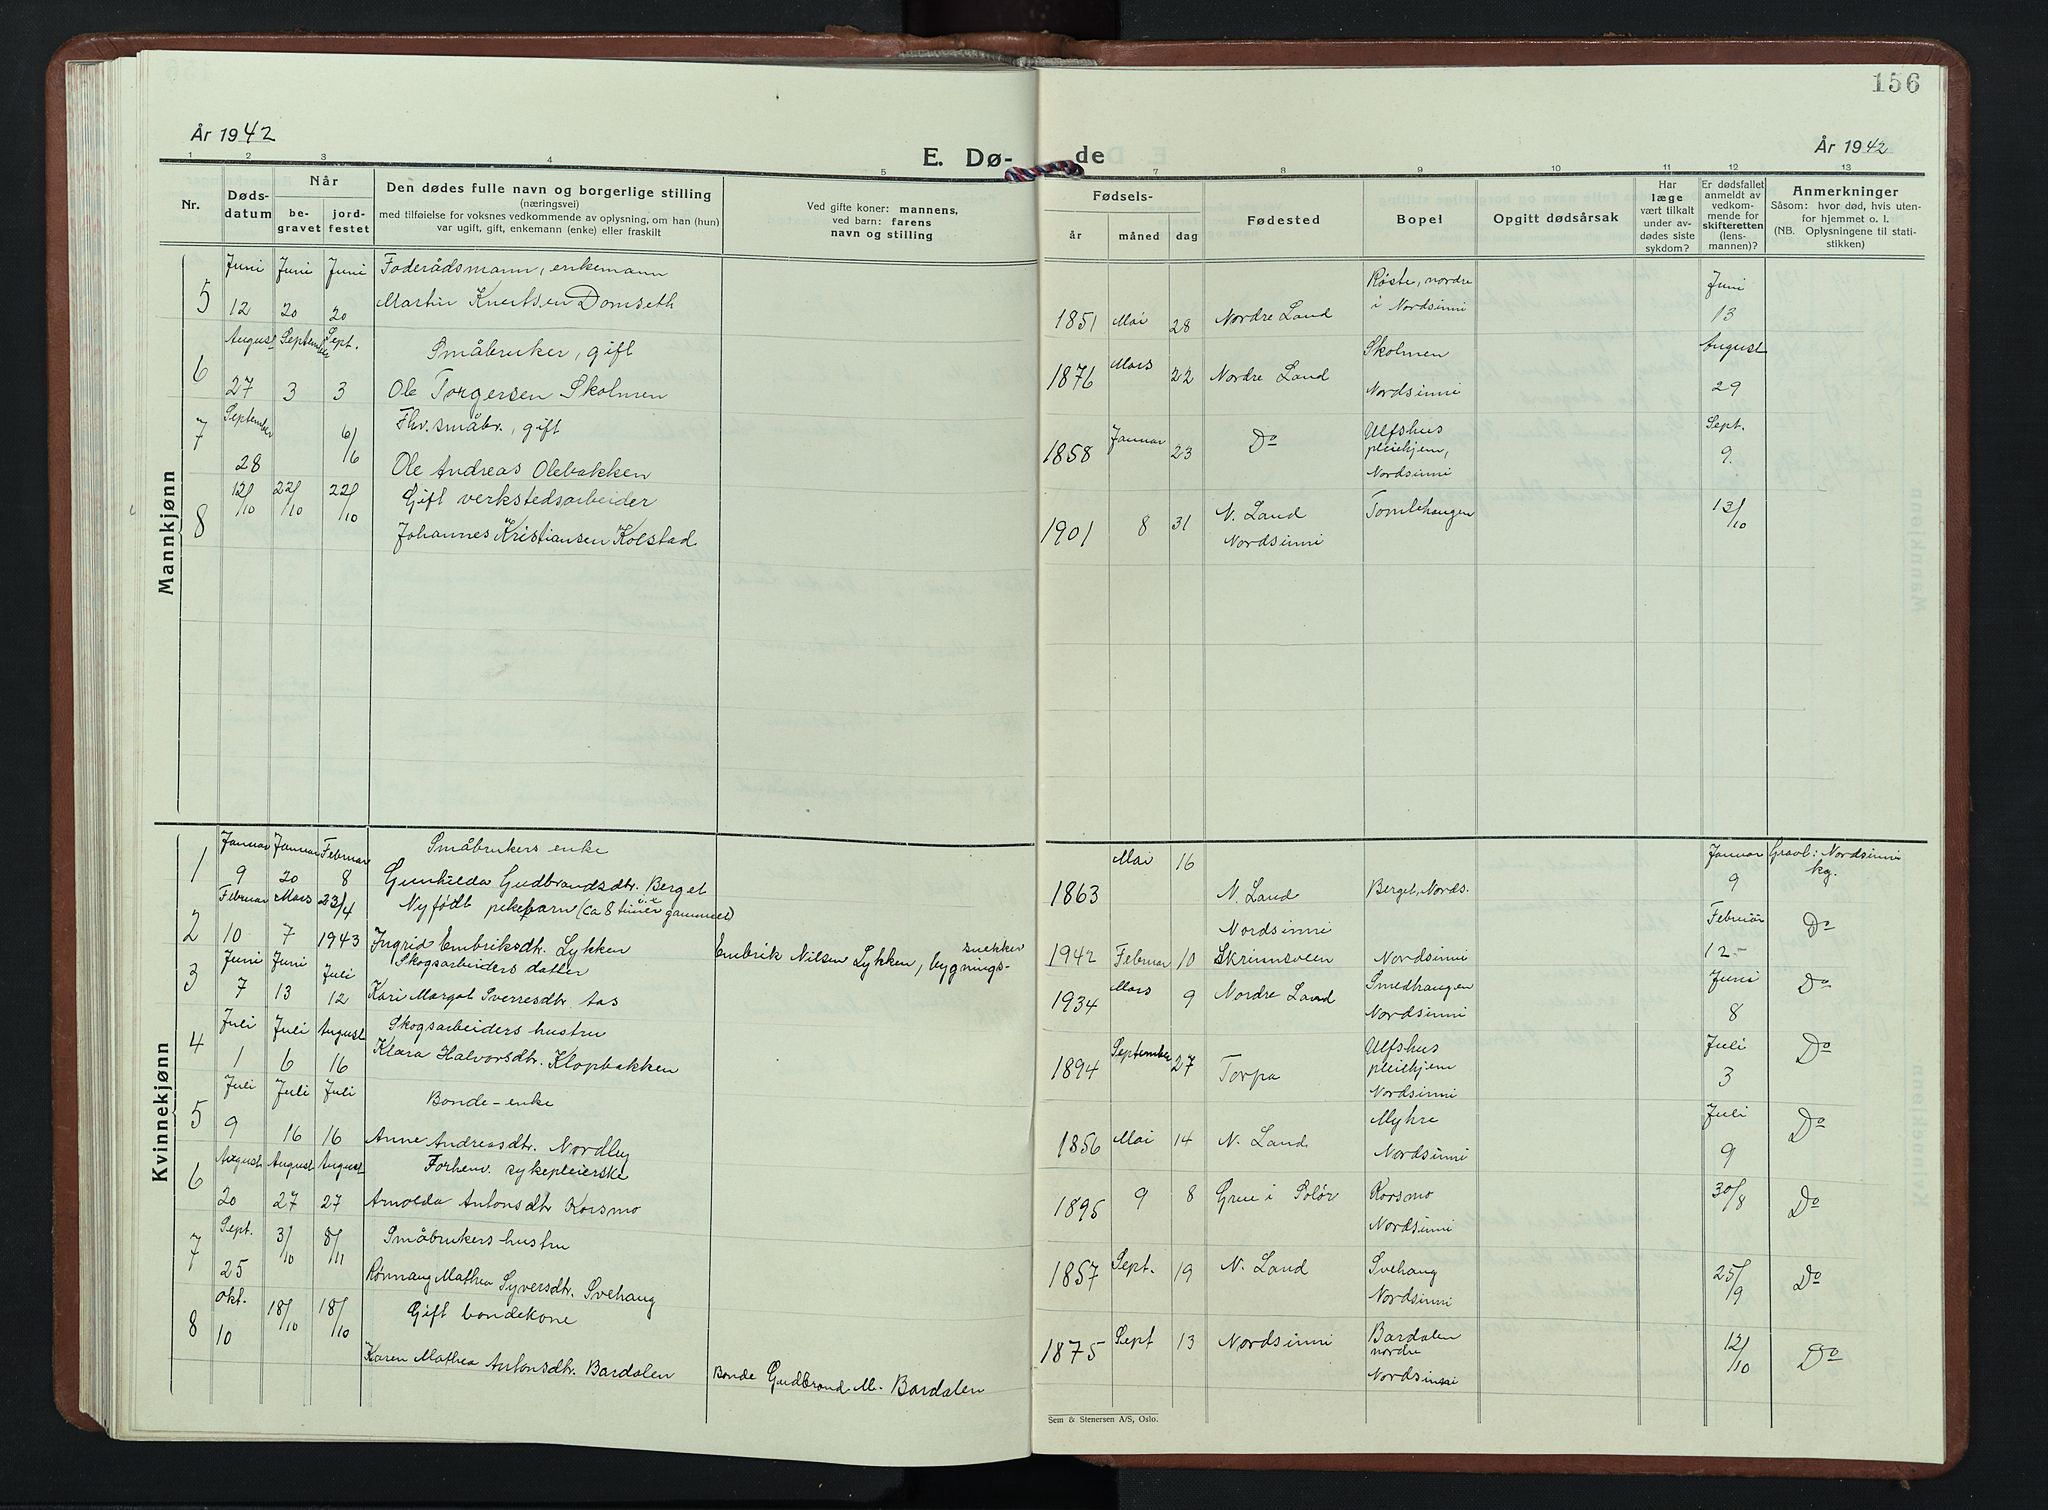 156
År 1942
E. Dø-
de
År 1942
1 2 3 4 5 7 8 9 10 11 12 13
Nr.
Døds-
datum
Når
be-
gravet
jord-
festet
Den dødes fulle navn og borgerlige stilling
(næringsvei)
med tilføielse for voksnes vedkommende av oplysning, om han (hun)
var ugift, gift, enkemann (enke) eller fraskilt
Ved gifte koner: mannens,
ved barn: farens
navn og stilling
Fødsels-
år måned dag
Fødested
Bopel
Opgitt dødsårsak
Har
læge
vært tilkalt
under av-
dødes siste
sykdom?
Er dødsfallet
anmeldt av
vedkom-
mende for
skifteretten
(lens-
mannen)?
Anmerkninger
Såsom: hvor død, hvis uten-
for hjemmet o. l.
(NB. Oplysningene til stati-
stikken)
Mannkjønn
Juni Juni Juni Føderådsmann, enkemann Røste, nordre Juni
5 12 20 20 Martin Knutsen Domseth 1851 Mai 28 Nordre Land i Nordsinni 13
August September Sept. Småbruker, gift Skolmen August
6 27 3 3 Ole Torgersen Skolmen 1876 Mars 22 Nordre Land Nordsinni 29
September Fhv. småbr., gift Ulfshus Sept.
7 28 6/6 Ole Andreas Olebakken 1858 Januar 23 Do pleiehjem, 9.
Nordsinni
12/10 22/10 22/10 Gift verkstedsarbeider N. Land Tomlehaugen 13/10
8 Johannes Kristiansen Kolstad 1901 8 31 Nordsinni
Kvinnekjønn
Januar Januar Februar Småbrukers enke Mai 16 Januar Gravl: Nordsinni
1 9 20 8 Gunhilda Gudbrandsdtr. Berget 1863 N. Land Berget, Nords. 9 kg.
Februar Mars 23/4 Nyfødt pikebarn (ca 8 timer gammel) Nordsinni Februar Do
2 10 7 1943 Ingrid Embriksdtr. Lykken Embrik Nilsen Lykken, bygnings-
snekker 1942 Februar 10 Skrinnsveen Nordsinni 12-
Juni Juni Juli Skogsarbeiders datter Mars Smedhaugen Juni Do
3 7 13 12 Kari Margot Sverresdtr. Aas 1934 9 Nordre Land Nordsinni 8
Juli Juli August Skogsarbeiders hustru September Ulfshus Juli Do
4 1 6 16 Klara Halvorsdtr. Klopbakken 1894 27 Torpa pleiehjem 3
Nordsinni
Juli Juli Juli Bonde-enke Myhre Juli Do
5 9 16 16 Anne Andreasdtr. Nordby 1856 Mai 14 N. Land Nordsinni 9
August August August Forhenv. sykepleierske
6 20 27 27 Arnolda Antonsdtr Korsmo 1895 9 8 Grue i Solør Korsmo 30/8 Do
Nordsinni
Sept. 3/10 8/11 Småbrukers hustru
7 25 Rønnaug Mathea Syversdtr. Svehaug 1857 Sept. 19 N. Land Svehaug 25/9 Do
Nordsinni
Okt. 18/10 18/10 Gift bondekone
8 10 Karen Mathea Antonsdtr. Bardalen Bonde Gudbrand M. Bardalen 1875 Sept 13 Nordsinni Bardalen 12/10 Do
nordre
Nordsinni
Sem & Stenersen A/S, Oslo.